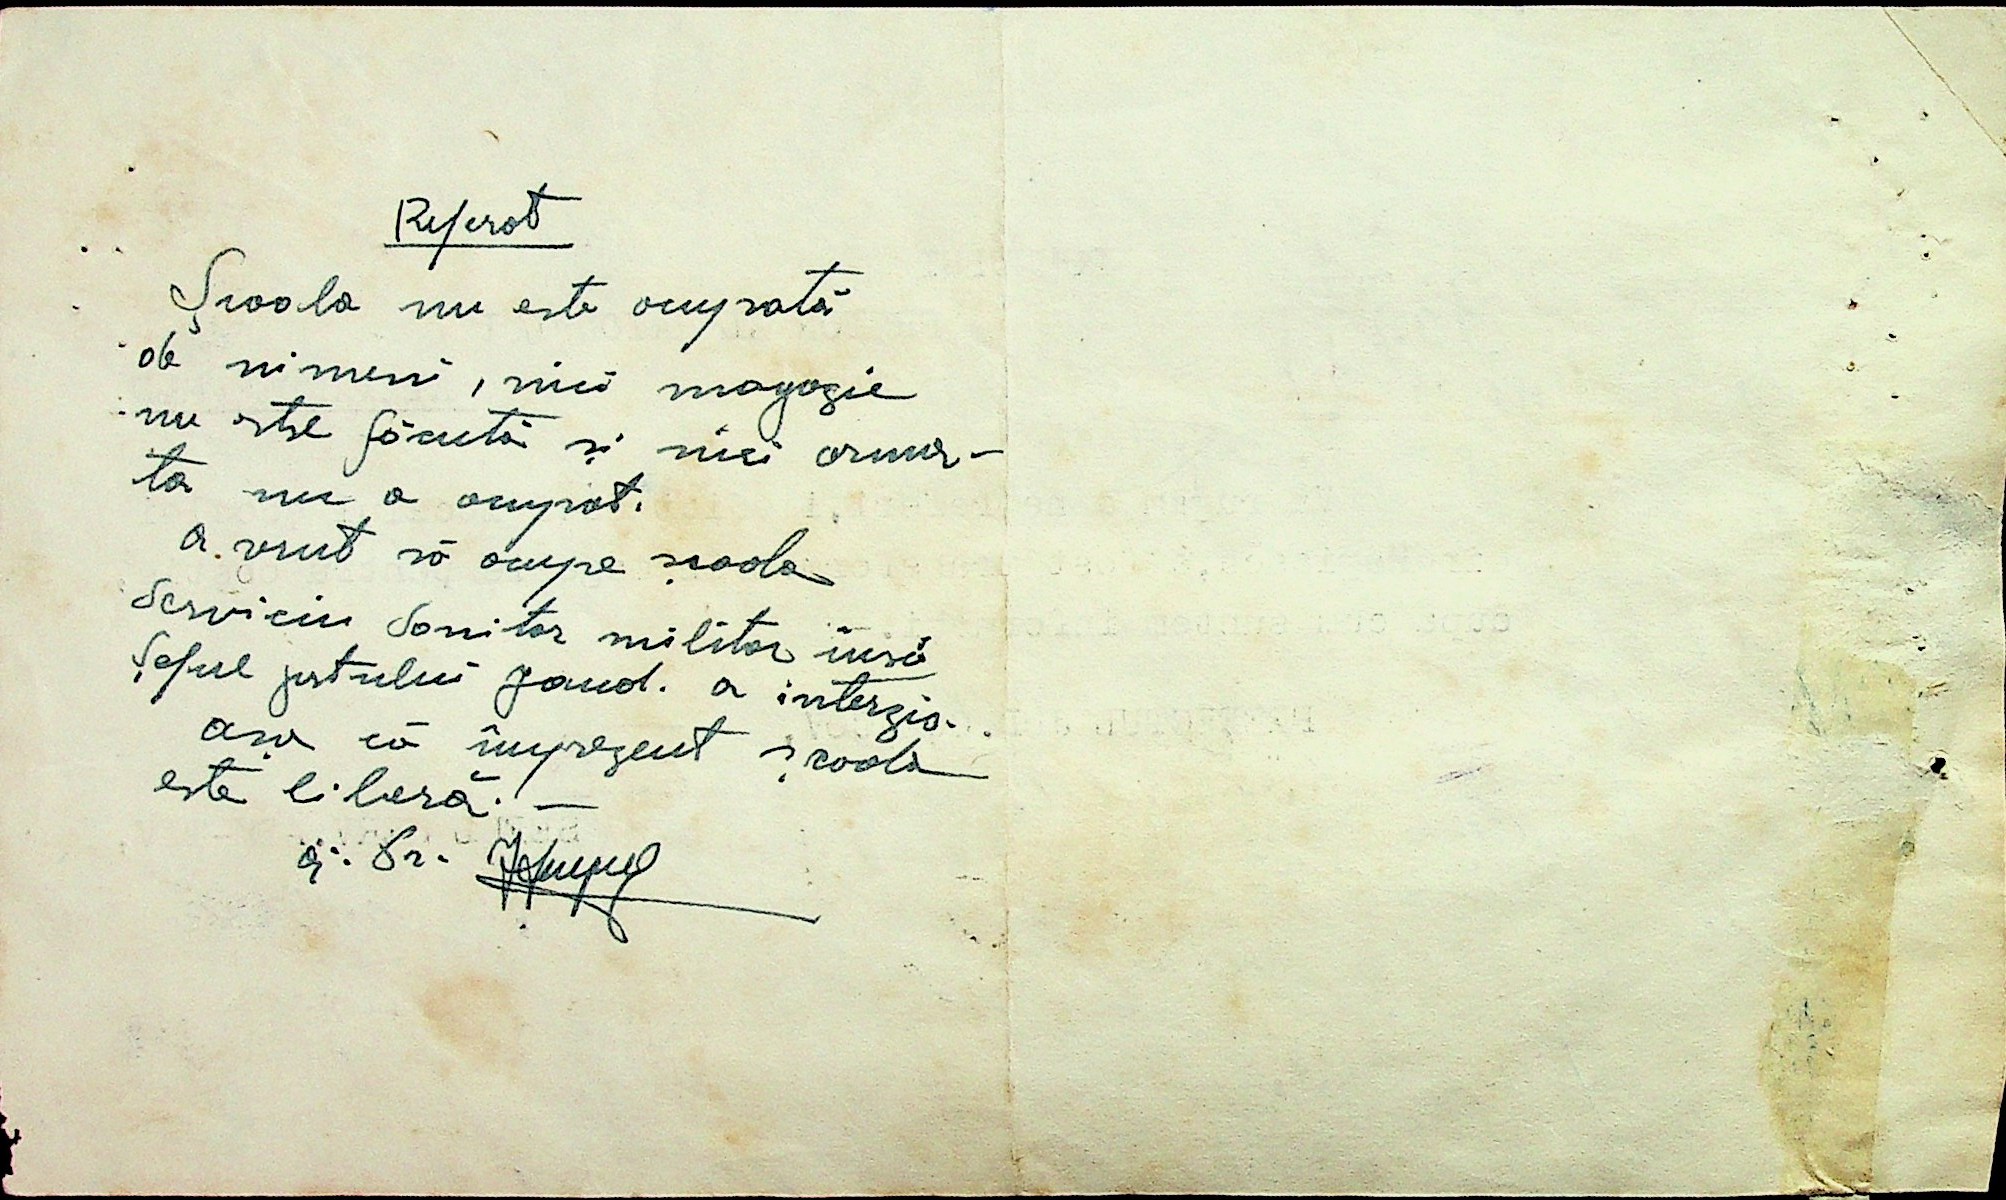 Referat
Școala nu este ocupată
de nimeni, nici magazie
nu este făcută și nici arma-
ta nu a ocupat.
A vrut să ocupe școala
Serviciu Sanitar militar însă
Șeful postului jand. a interzis.
așa că împrezent școala
este liberă. —